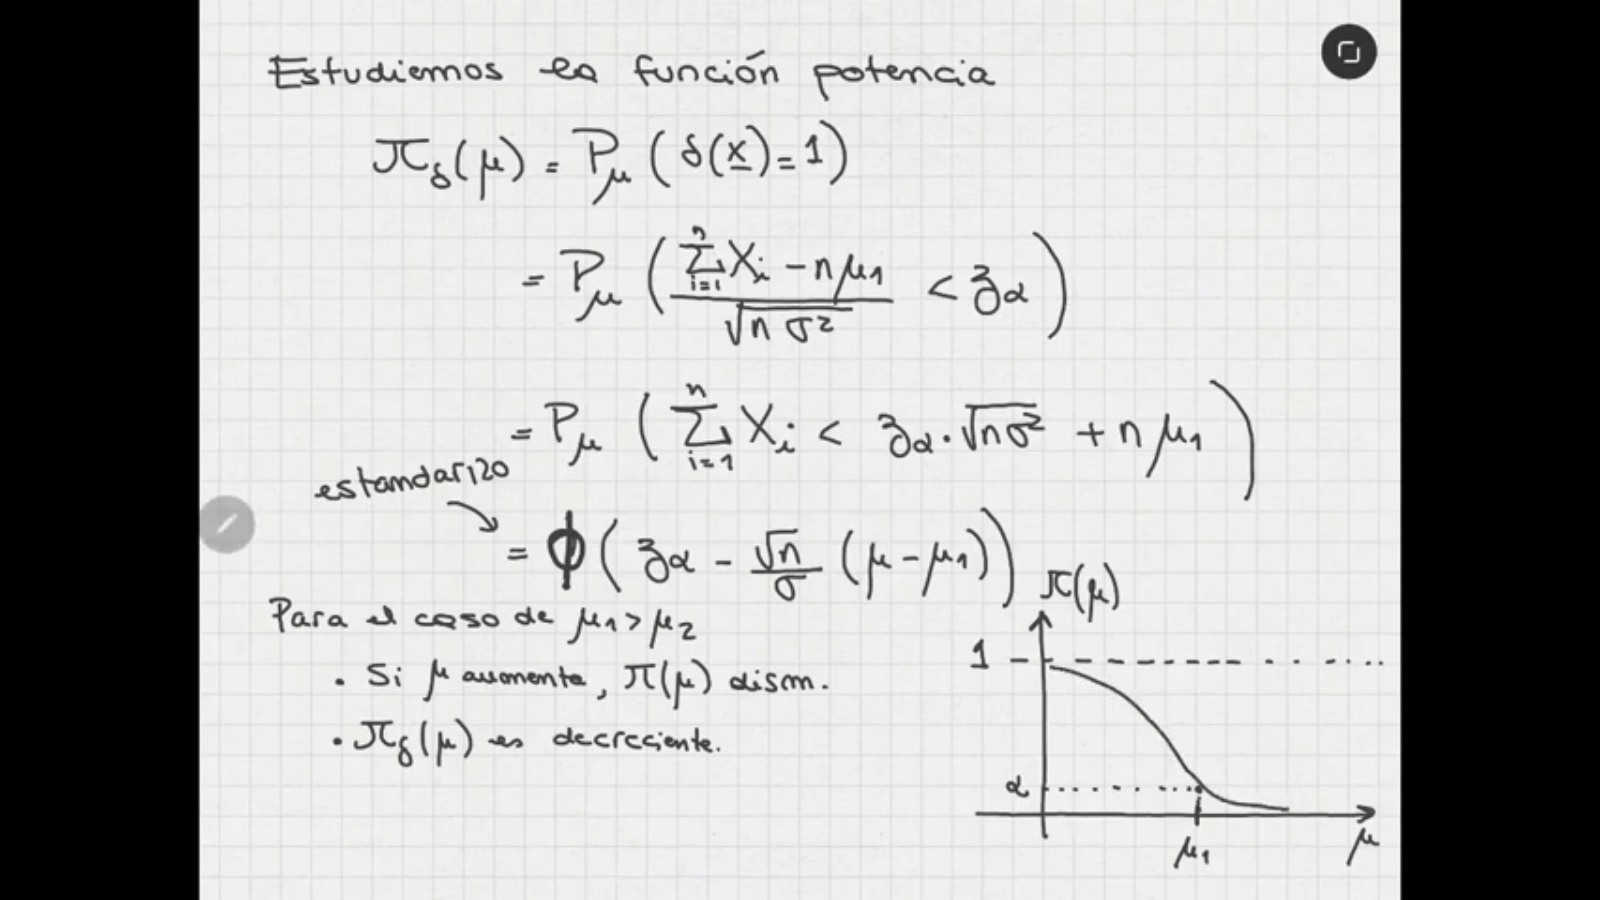 Estudiemos la función potencia
π_δ(μ) = P_μ (δ(x̲) = 1)
= P_μ ( (∑_{i=1}^{n} X_i − nμ_1) / √(nσ²) < z_α )
= P_μ ( ∑_{i=1}^{n} X_i < z_α · √(nσ²) + nμ_1 )
estandarizo
= ϕ ( z_α − √n/σ (μ − μ_1) )
Para el caso de μ_1 > μ_2
• Si μ aumenta, π(μ) dism.
• π_δ(μ) es decreciente.
π(μ)
1
α
μ_1
μ